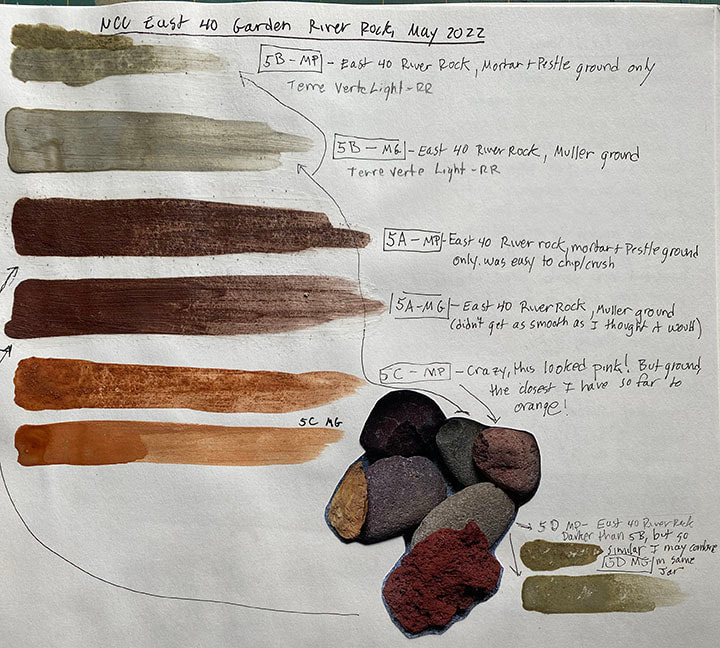 NCC East 40 Garden River Rock, May 2022
5B-MP - East 40 River Rock, Mortar + Pestle ground only
Terre Verte Light - RR
5B-MG - East 40 River Rock, Muller ground
Terre Verte Light - RR
5A-MP - East 40 River rock, mortar + Pestle ground
only. was easy to chip/crush
5A-MG - East 40 River Rock, Muller ground
(didn't get as smooth as I thought it would)
5C-MP - Crazy, this looked pink! But ground,
the closest I have so far to
orange!
5C MG
5D MP- East 40 River Rock
Darker than 5B, but so
similar I may combine
5D MG in same
Jar